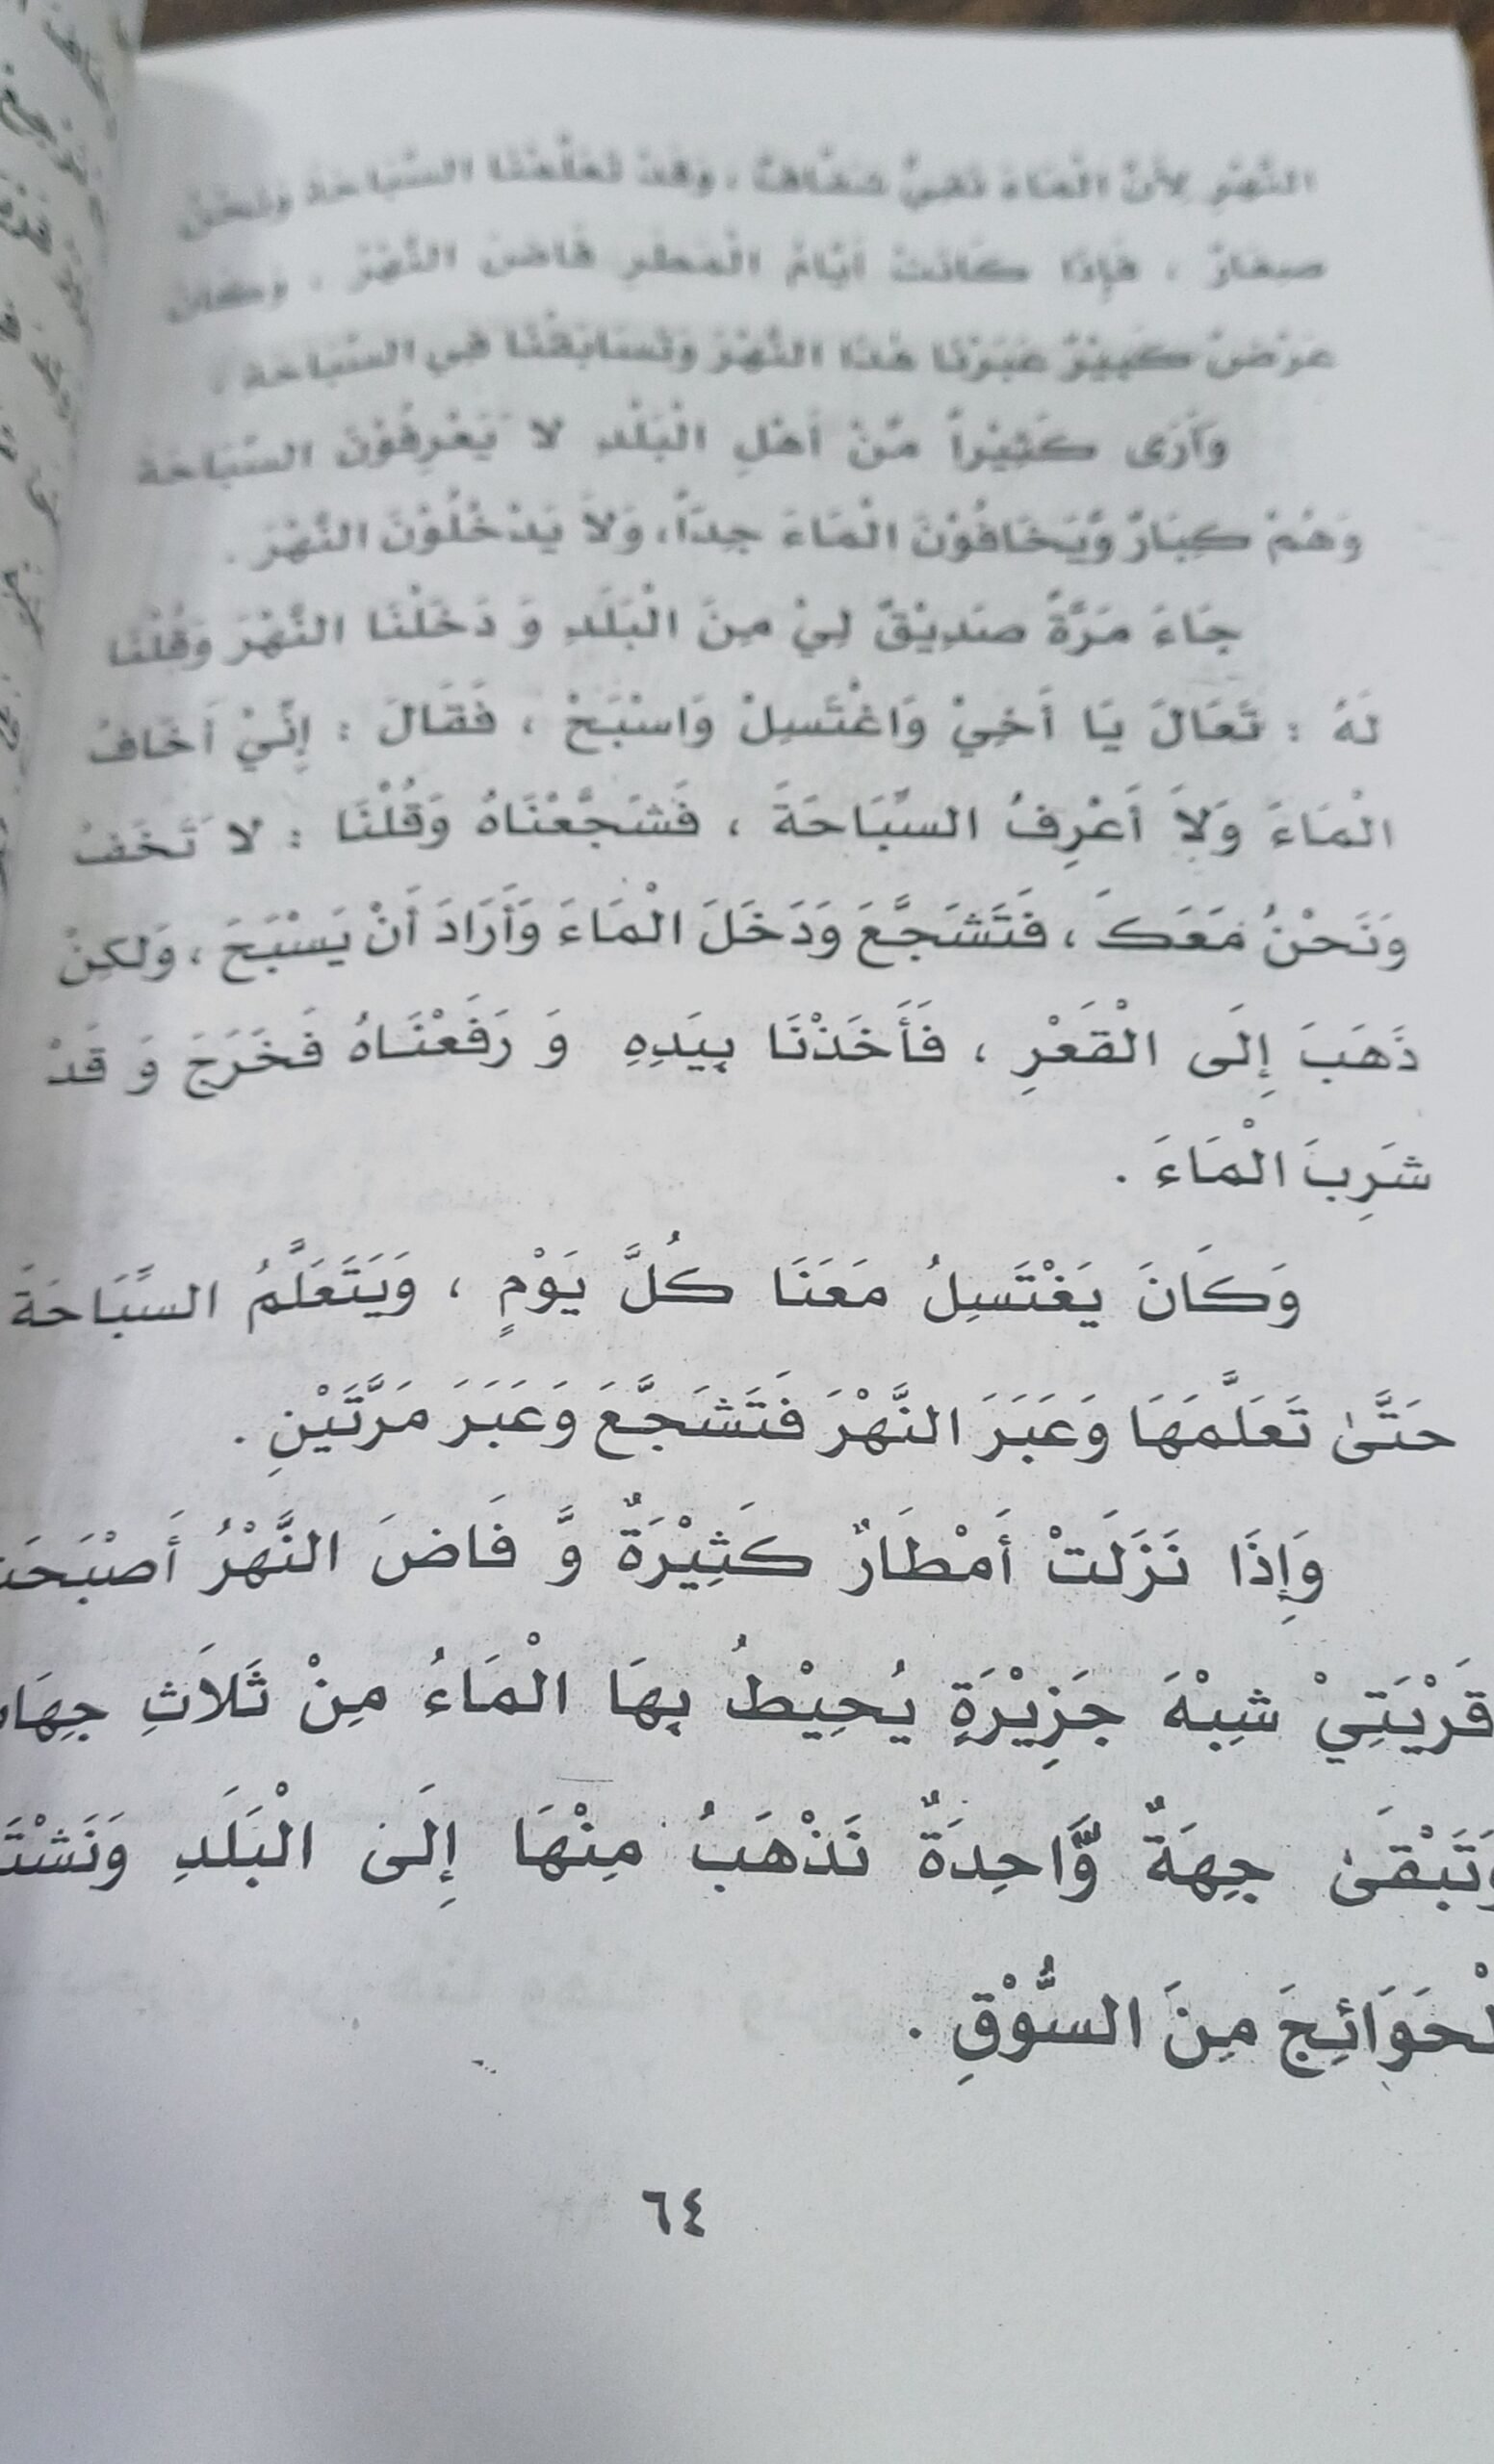 النَّهْرِ لِأَنَّ الْمَاءَ نَقِيٌّ شَفَّافٌ ، وَقَدْ تَعَلَّمْنَا السِّبَاحَةَ وَنَحْنُ
صِغَارٌ ، فَإِذَا كَانَتْ أَيَّامُ الْمَطَرِ فَاضَ النَّهْرُ ، وَكَانَ
عَرْضٌ كَبِيْرٌ عَبَرْنَا هٰذَا النَّهْرَ وَتَسَابَقْنَا فِي السِّبَاحَةِ .
وَأَرَى كَثِيْراً مِّنْ أَهْلِ الْبَلَدِ لَا يَعْرِفُوْنَ السِّبَاحَةَ
وَهُمْ كِبَارٌ وَّيَخَافُوْنَ الْمَاءَ جِدّاً، وَلاَ يَدْخُلُوْنَ النَّهْرَ .
جَاءَ مَرَّةً صَدِيْقٌ لِيْ مِنَ الْبَلَدِ وَ دَخَلْنَا النَّهْرَ وَقُلْنَا
لَهُ : تَعَالَ يَا أَخِيْ وَاغْتَسِلْ وَاسْبَحْ ، فَقَالَ : إِنِّيْ أَخَافُ
الْمَاءَ وَلاَ أَعْرِفُ السِّبَاحَةَ ، فَشَجَّعْنَاهُ وَقُلْنَا : لَا تَخَفْ
وَنَحْنُ مَعَكَ ، فَتَشَجَّعَ وَدَخَلَ الْمَاءَ وَأَرَادَ أَنْ يَسْبَحَ ، وَلٰكِنْ
ذَهَبَ إِلَى الْقَعْرِ ، فَأَخَذْنَا بِيَدِهِ وَ رَفَعْنَاهُ فَخَرَجَ وَ قَدْ
شَرِبَ الْمَاءَ .
وَكَانَ يَغْتَسِلُ مَعَنَا كُلَّ يَوْمٍ ، وَيَتَعَلَّمُ السِّبَاحَةَ
حَتَّىٰ تَعَلَّمَهَا وَعَبَرَ النَّهْرَ فَتَشَجَّعَ وَعَبَرَ مَرَّتَيْنِ .
وَإِذَا نَزَلَتْ أَمْطَارٌ كَثِيْرَةٌ وَّ فَاضَ النَّهْرُ أَصْبَحَتْ
قَرْيَتِيْ شِبْهَ جَزِيْرَةٍ يُحِيْطُ بِهَا الْمَاءُ مِنْ ثَلاَثِ
وَتَبْقَىٰ جِهَةٌ وَّاحِدَةٌ نَذْهَبُ مِنْهَا إِلَى الْبَلَدِ
الْحَوَائِجَ مِنَ السُّوْقِ .
٦٤